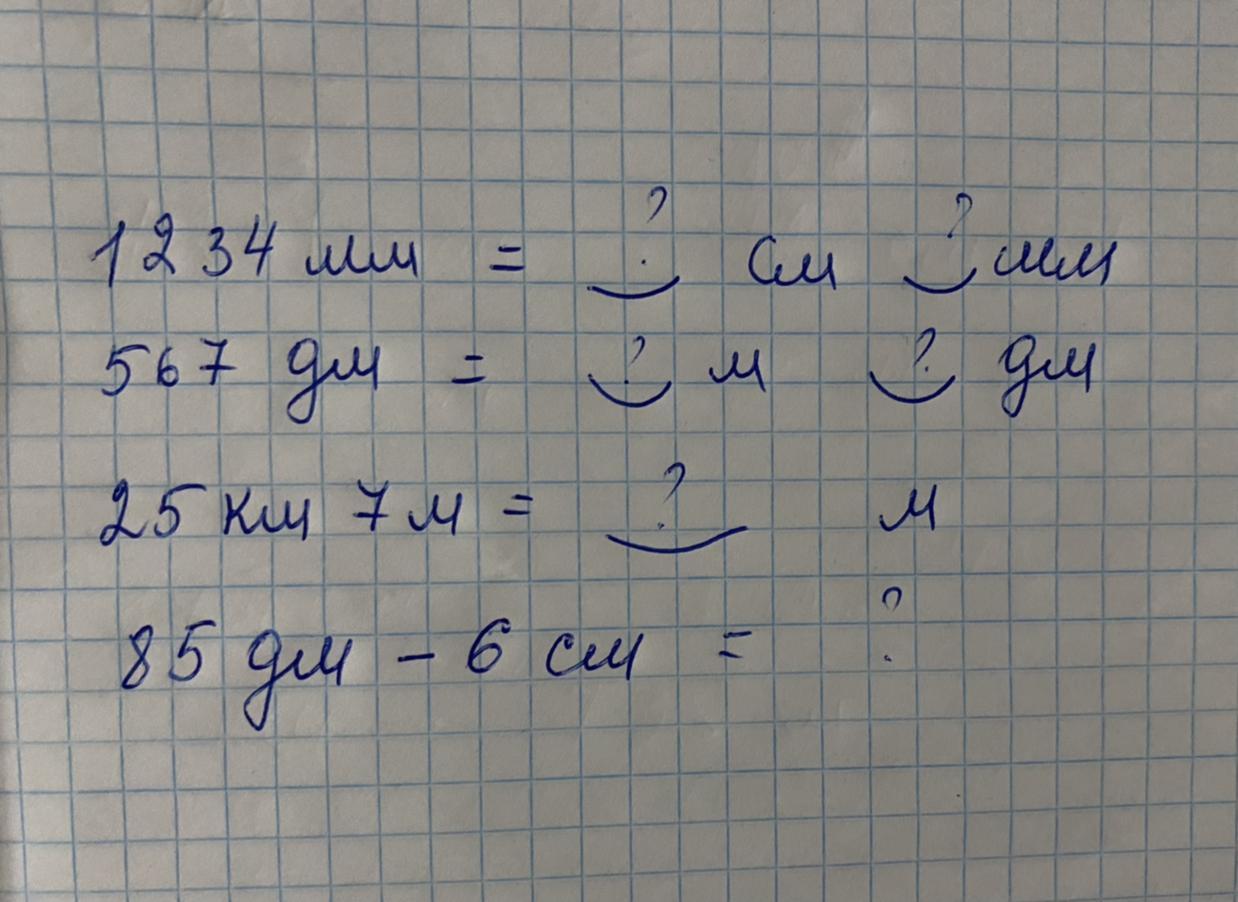 1234 мм = ? см ? мм
567 дм = ? м ? дм
25 км 7 м = ? м
85 дм - 6 см = ?